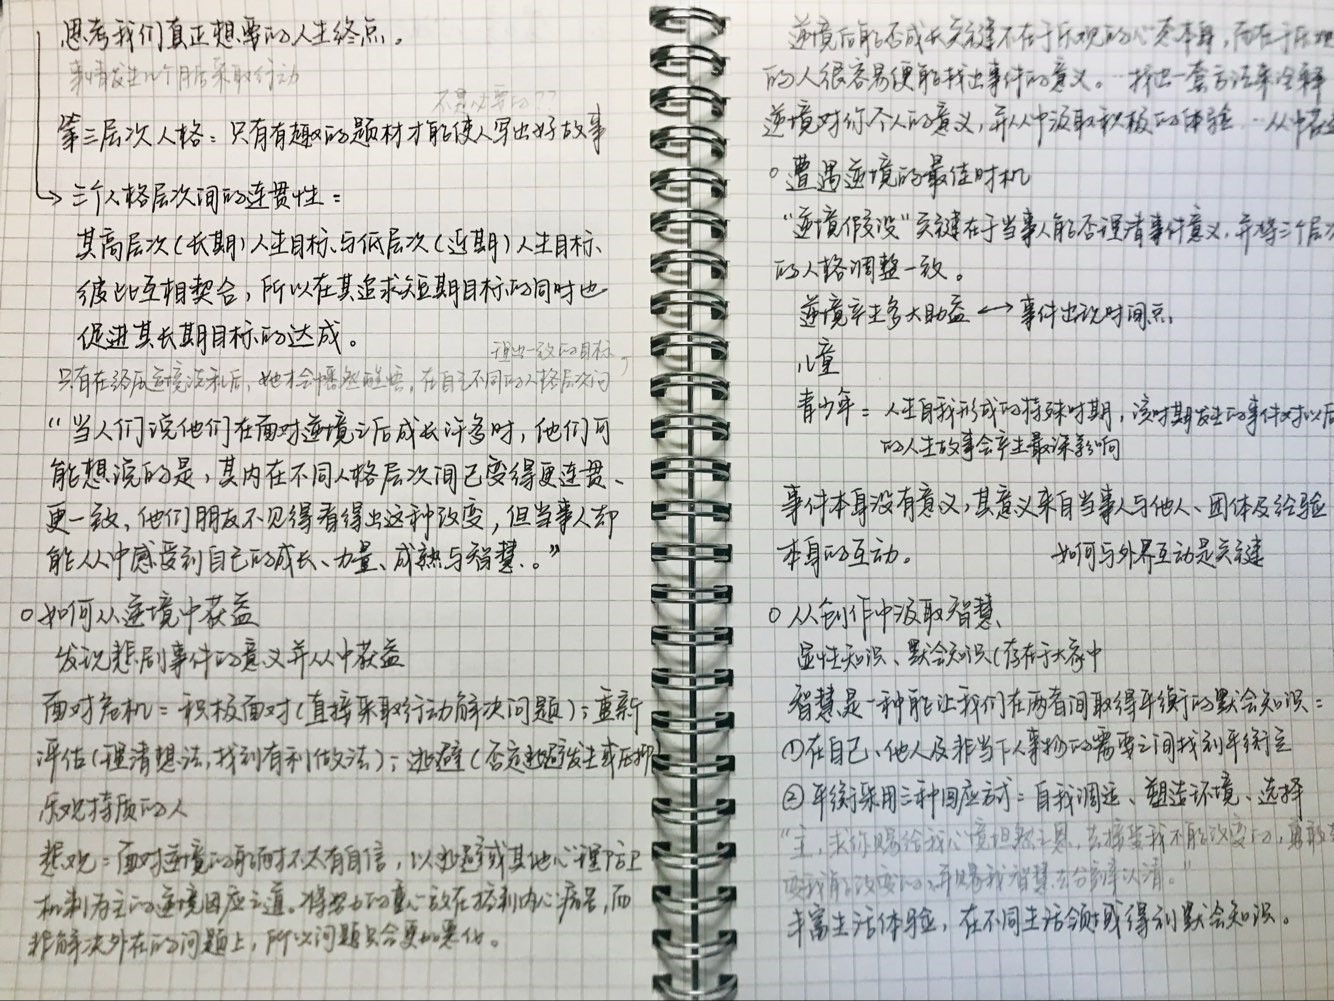 思考我们真正想要的人生终点。
事情发生几个月后采取行动
不是必要的??
第三层次人格：只有有趣的题材才能使人写出好故事
三个人格层次间的连贯性：
其高层次(长期)人生目标与低层次(近期)人生目标、
彼此互相契合，所以在其追求短期目标的同时也
促进其长期目标的达成。
理出一致的目标，
只有在经历逆境洗礼后，她才会幡然醒悟，在自己不同的人格层次间
“当人们说他们在面对逆境之后成长许多时，他们可
能想说的是，其内在不同人格层次间已变得更连贯、
更一致，他们朋友不见得看得出这种改变，但当事人却
能从中感受到自己的成长、力量、成熟与智慧。”
○如何从逆境中获益
发现悲剧事件的意义并从中获益
面对危机：积极面对(直接采取行动解决问题)；重新
评估(理清想法，找到有利做法)；逃避(否定逃避发生或压抑
乐观特质的人
悲观：面对逆境的能耐不太有自信，以逃避或其他心理防卫
机制为主的逆境因应之道。将努力的重心放在控制内心痛苦，而
非解决外在的问题上，所以问题只会更加恶化。
逆境后能否成长关键不在于乐观的心态本身，而在于乐观
的人很容易便能找出事件的意义。…找出一套方法来诠释
逆境对你个人的意义，并从中汲取积极的体验…从中获益
○遭遇逆境的最佳时机
“逆境假设”关键在于当事人能否理清事件意义，并将三个层次
的人格调整一致。
逆境产生多大助益 ↔ 事件出现时间点
儿童
青少年：人生自我形成的特殊时期，该时期发生的事件对以后
的人生故事会产生最深影响
事件本身没有意义，其意义来自当事人与他人、团体及经验
本身的互动。 如何与外界互动是关键
○从创作中汲取智慧
显性知识、默会知识(存在于大脑中
智慧是一种能让我们在两者间取得平衡的默会知识：
①在自己、他人及非当下人事物的需要之间找到平衡定
②平衡采用三种回应方式：自我调适、塑造环境、选择
“主，求你赐给我心境坦然之恩，去接受我不能改变的，勇敢去
改我能改变的，并赐我智慧去分辨认清。”
丰富生活体验，在不同生活领域获得到默会知识。